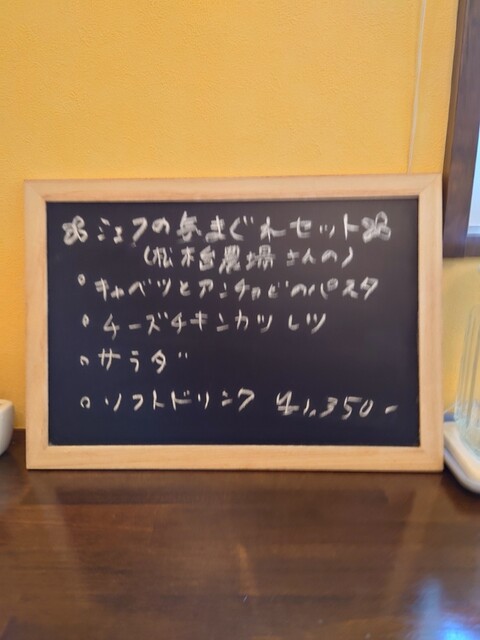 シェフの気まぐれセット
(松本農場さんの)
・キャベツとアンチョビのパスタ
・チーズチキンカツレツ
・サラダ
・ソフトドリンク ¥1,350-